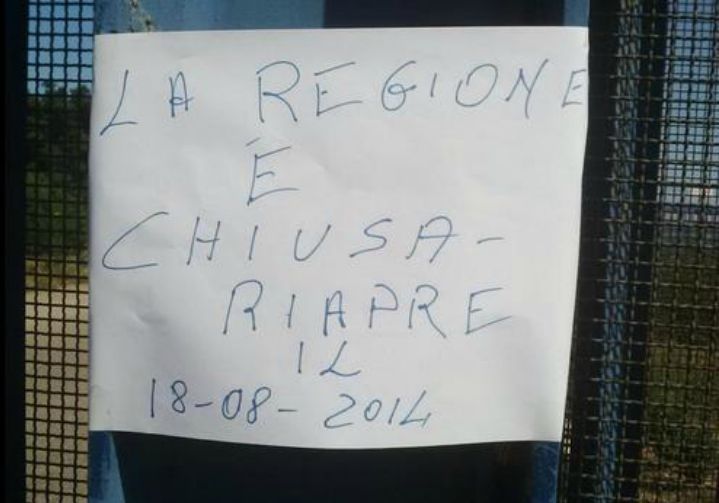 LA REGIONE
É
CHIUSA-
RIAPRE
IL
18-08-2014